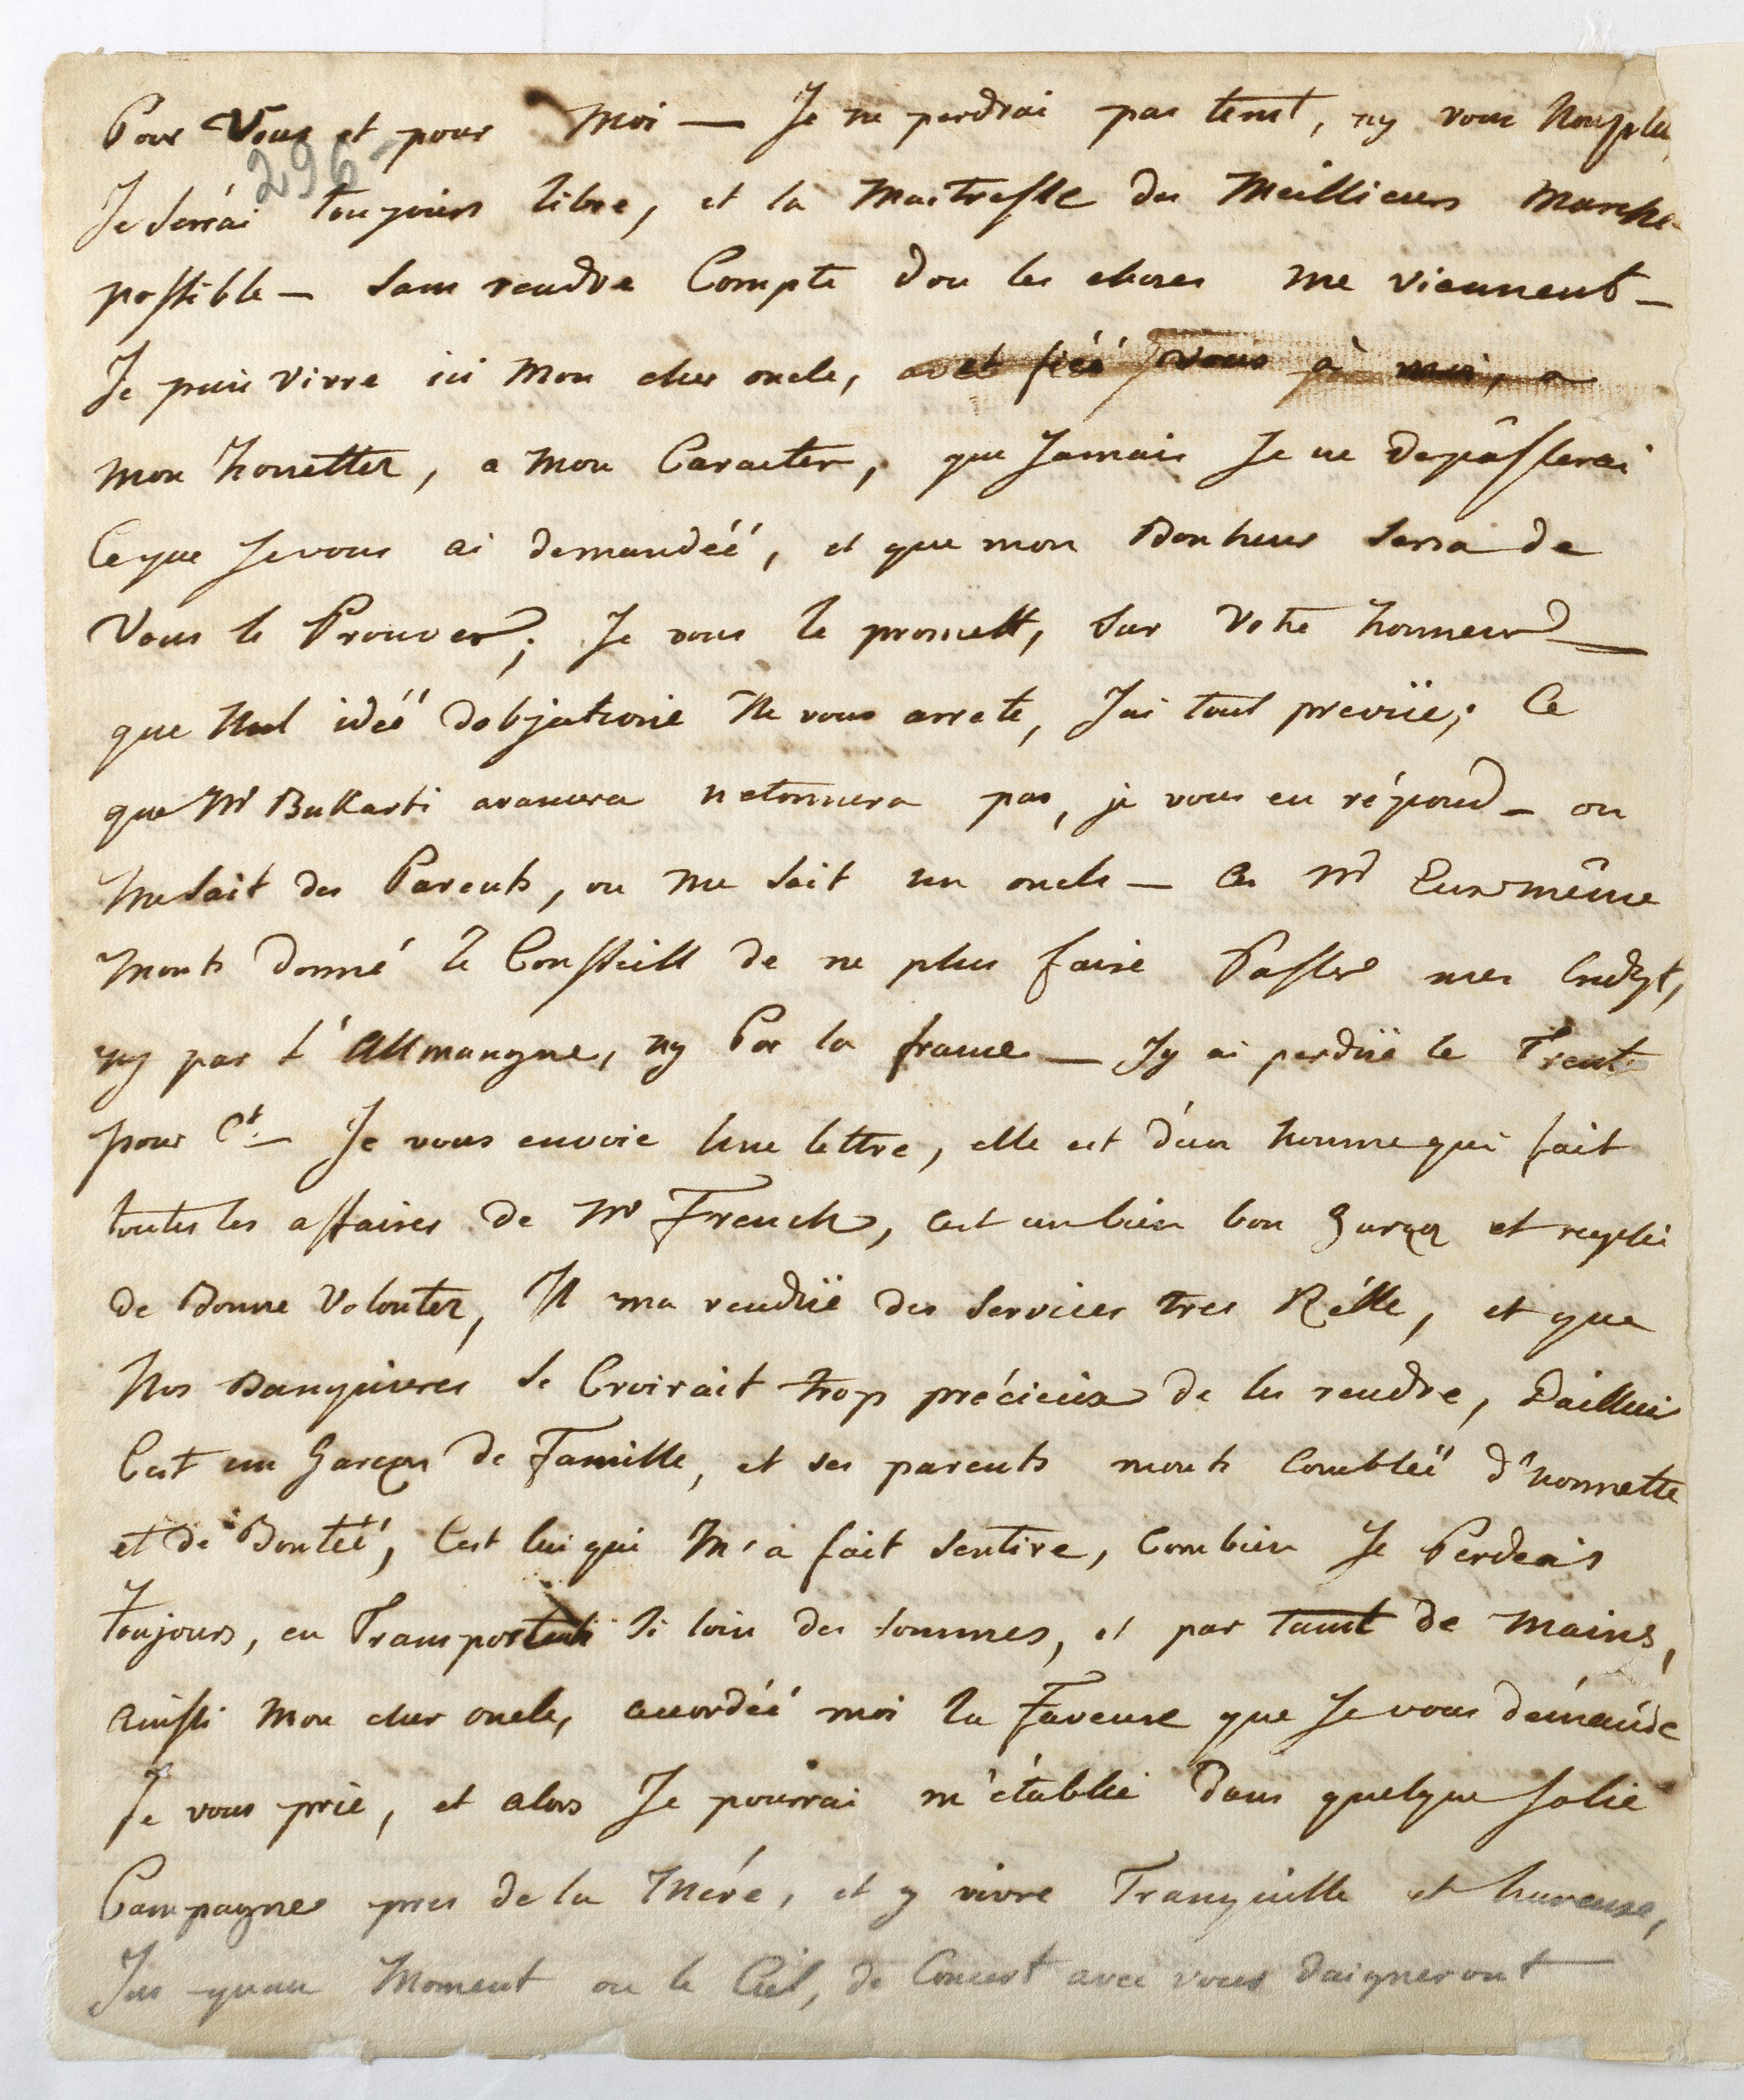 Pour Vous et pour Moi — Je ne perdrai pas temt, ny vous Nonplu,
296
Je Serrai toujours libre, et la Maitresse des Meillieurs Marche
possible — Sans rendre Compte dou les choses me viennent —
Je puis vivre ici Mon cher oncle, et fiéé vous à moi, a
mon honetter, a Mon Caracter, que Jamais Je ne Depâsserai
Ceque Jevous ai demandéé, et que mon Bonheur Serra de
Vous le Prouver; Je vous le promett, Sur Votre honneur —
que Nul idéé dobjectione Ne vous arrete, Jai tout prevüe; Ce
que Mr Bukarti avancera netonnera pas, je vous en répond — on
Me Sait des Parents, on me Sait un oncle — Ces Mr Eux même
monts donné le Consseill de ne plus faire Passer mes
ny par L'Allmangne, ny Par la france — Jy ai perdüe le Trente
pour Ct — Je vous envoie Une lettre, elle est d'un homme qui fait
toutes les affaires de Mr French, cest un bien bon Garçon et remplie
de Bonne Volonter, Il ma rendüe des Services tres Rélle, et que
Nos Banquieres Se Croirait trop précieux de les rendre, Dailleur
Cest un Garçon de Famille, et ses parents monts Combléé d'honnette
et de Bontéé, Cest lui qui M'a fait Sentire, Combien Je Perdais
toujours, en Transportent Si loin des Sommes, et par tamt de Mains,
ainssi Mon cher oncle, accordéé moi la Faveure que Je vous démande
Je vous prie, et alors Je pourrai m'établie dans quelque Jolie
Campagne pres de la Mére, et y vivre Tranquille et hureuse,
Jus quau Moment ou le Ciel, de Concert avec vous daigneront